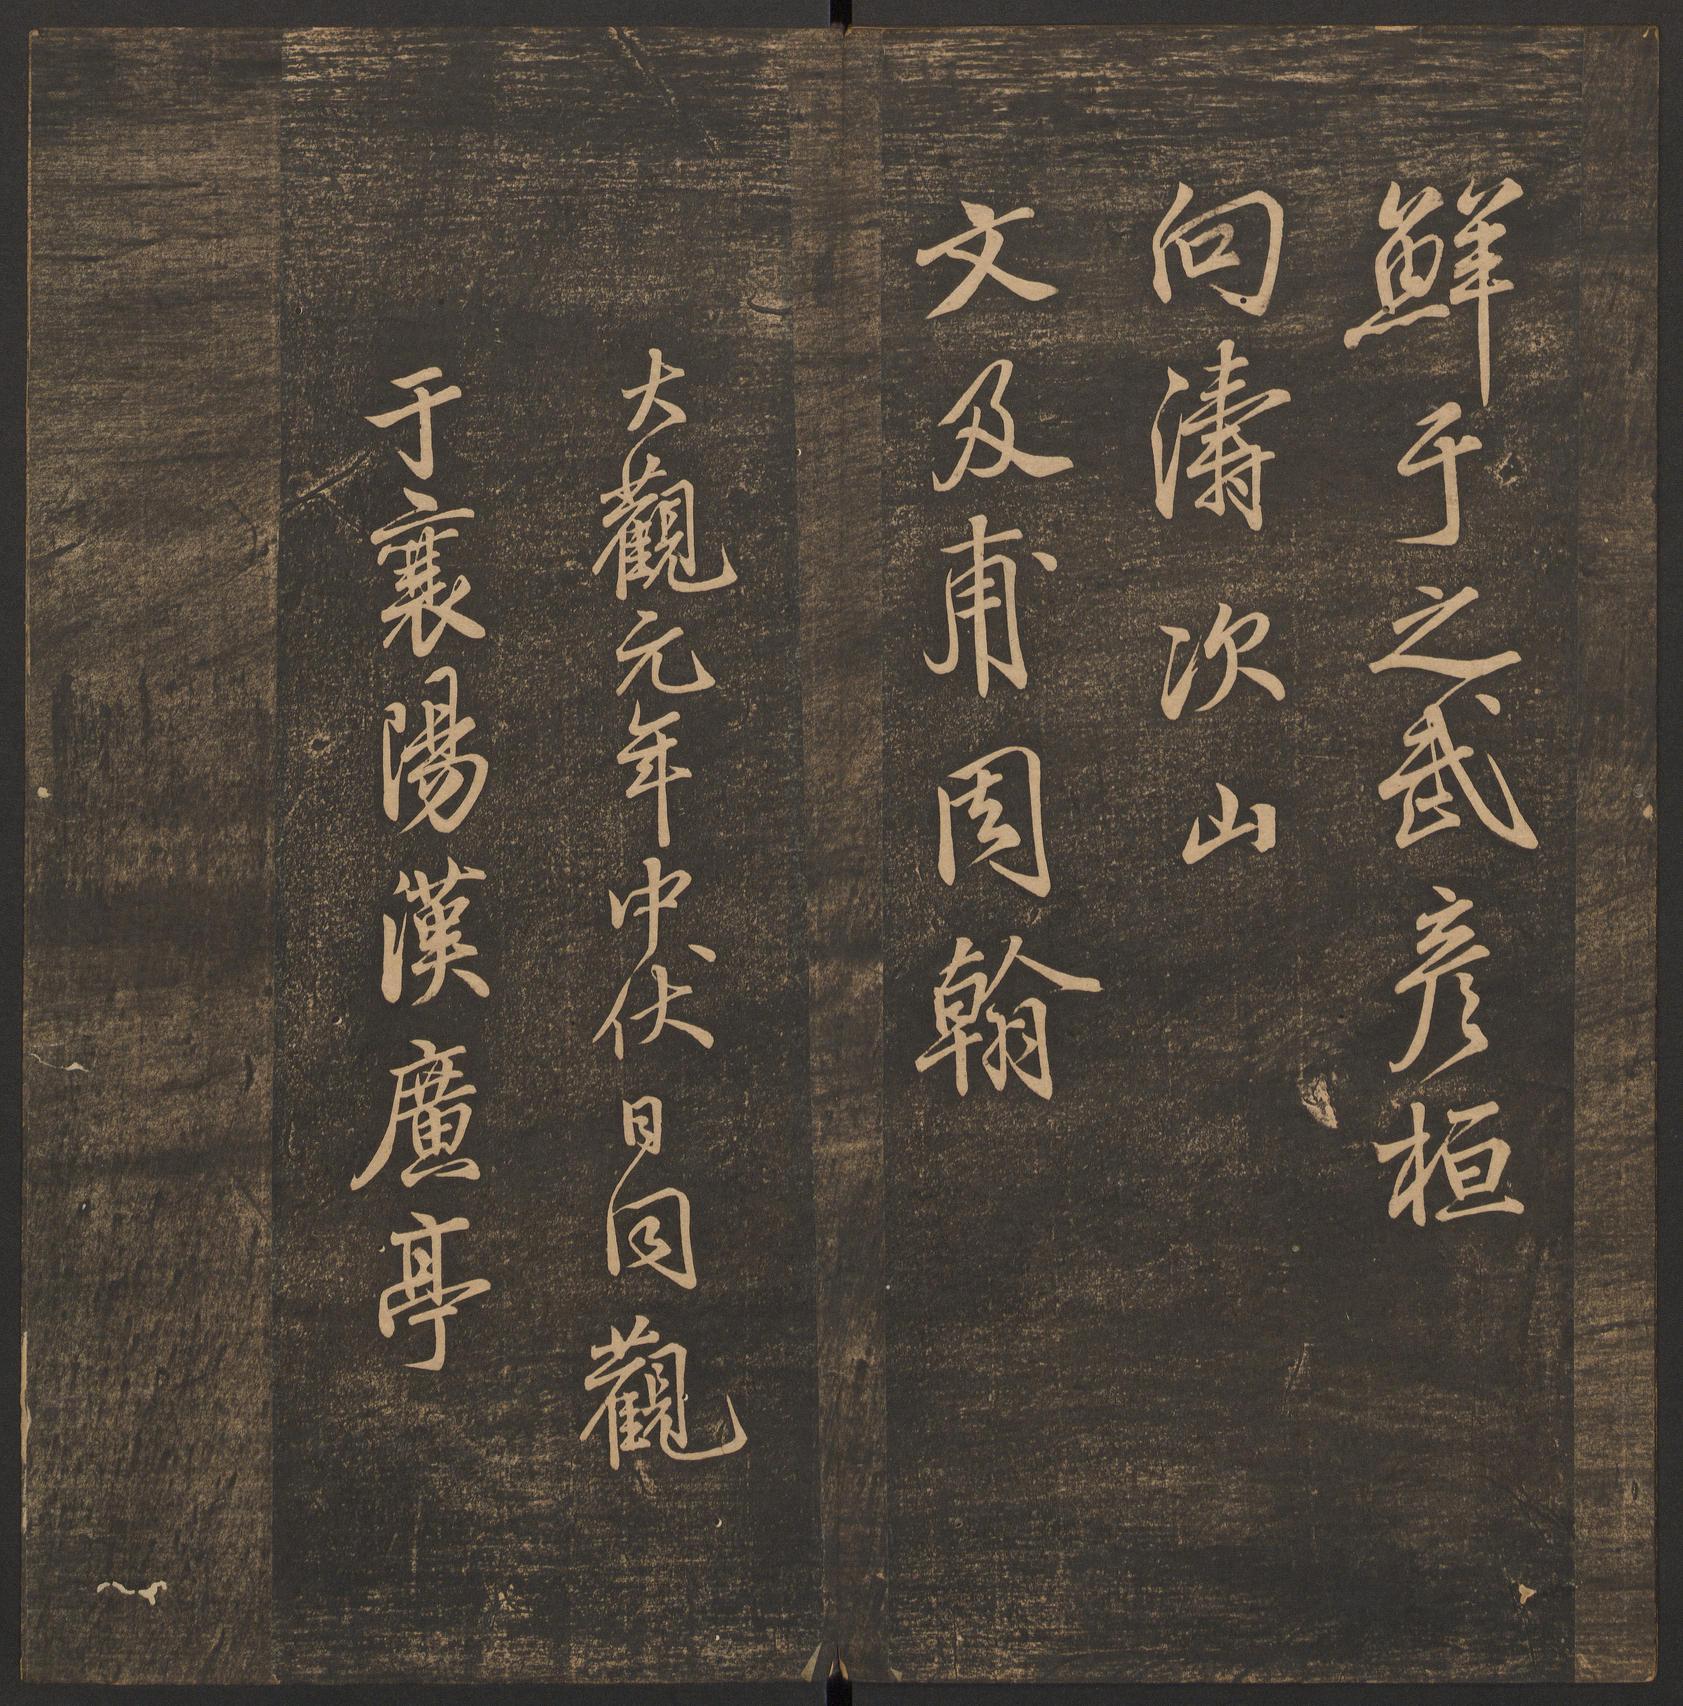 鮮于之武彥桓
向濤次山
文及甫周翰
大觀元年中伏日同觀
于襄陽漢廣亭